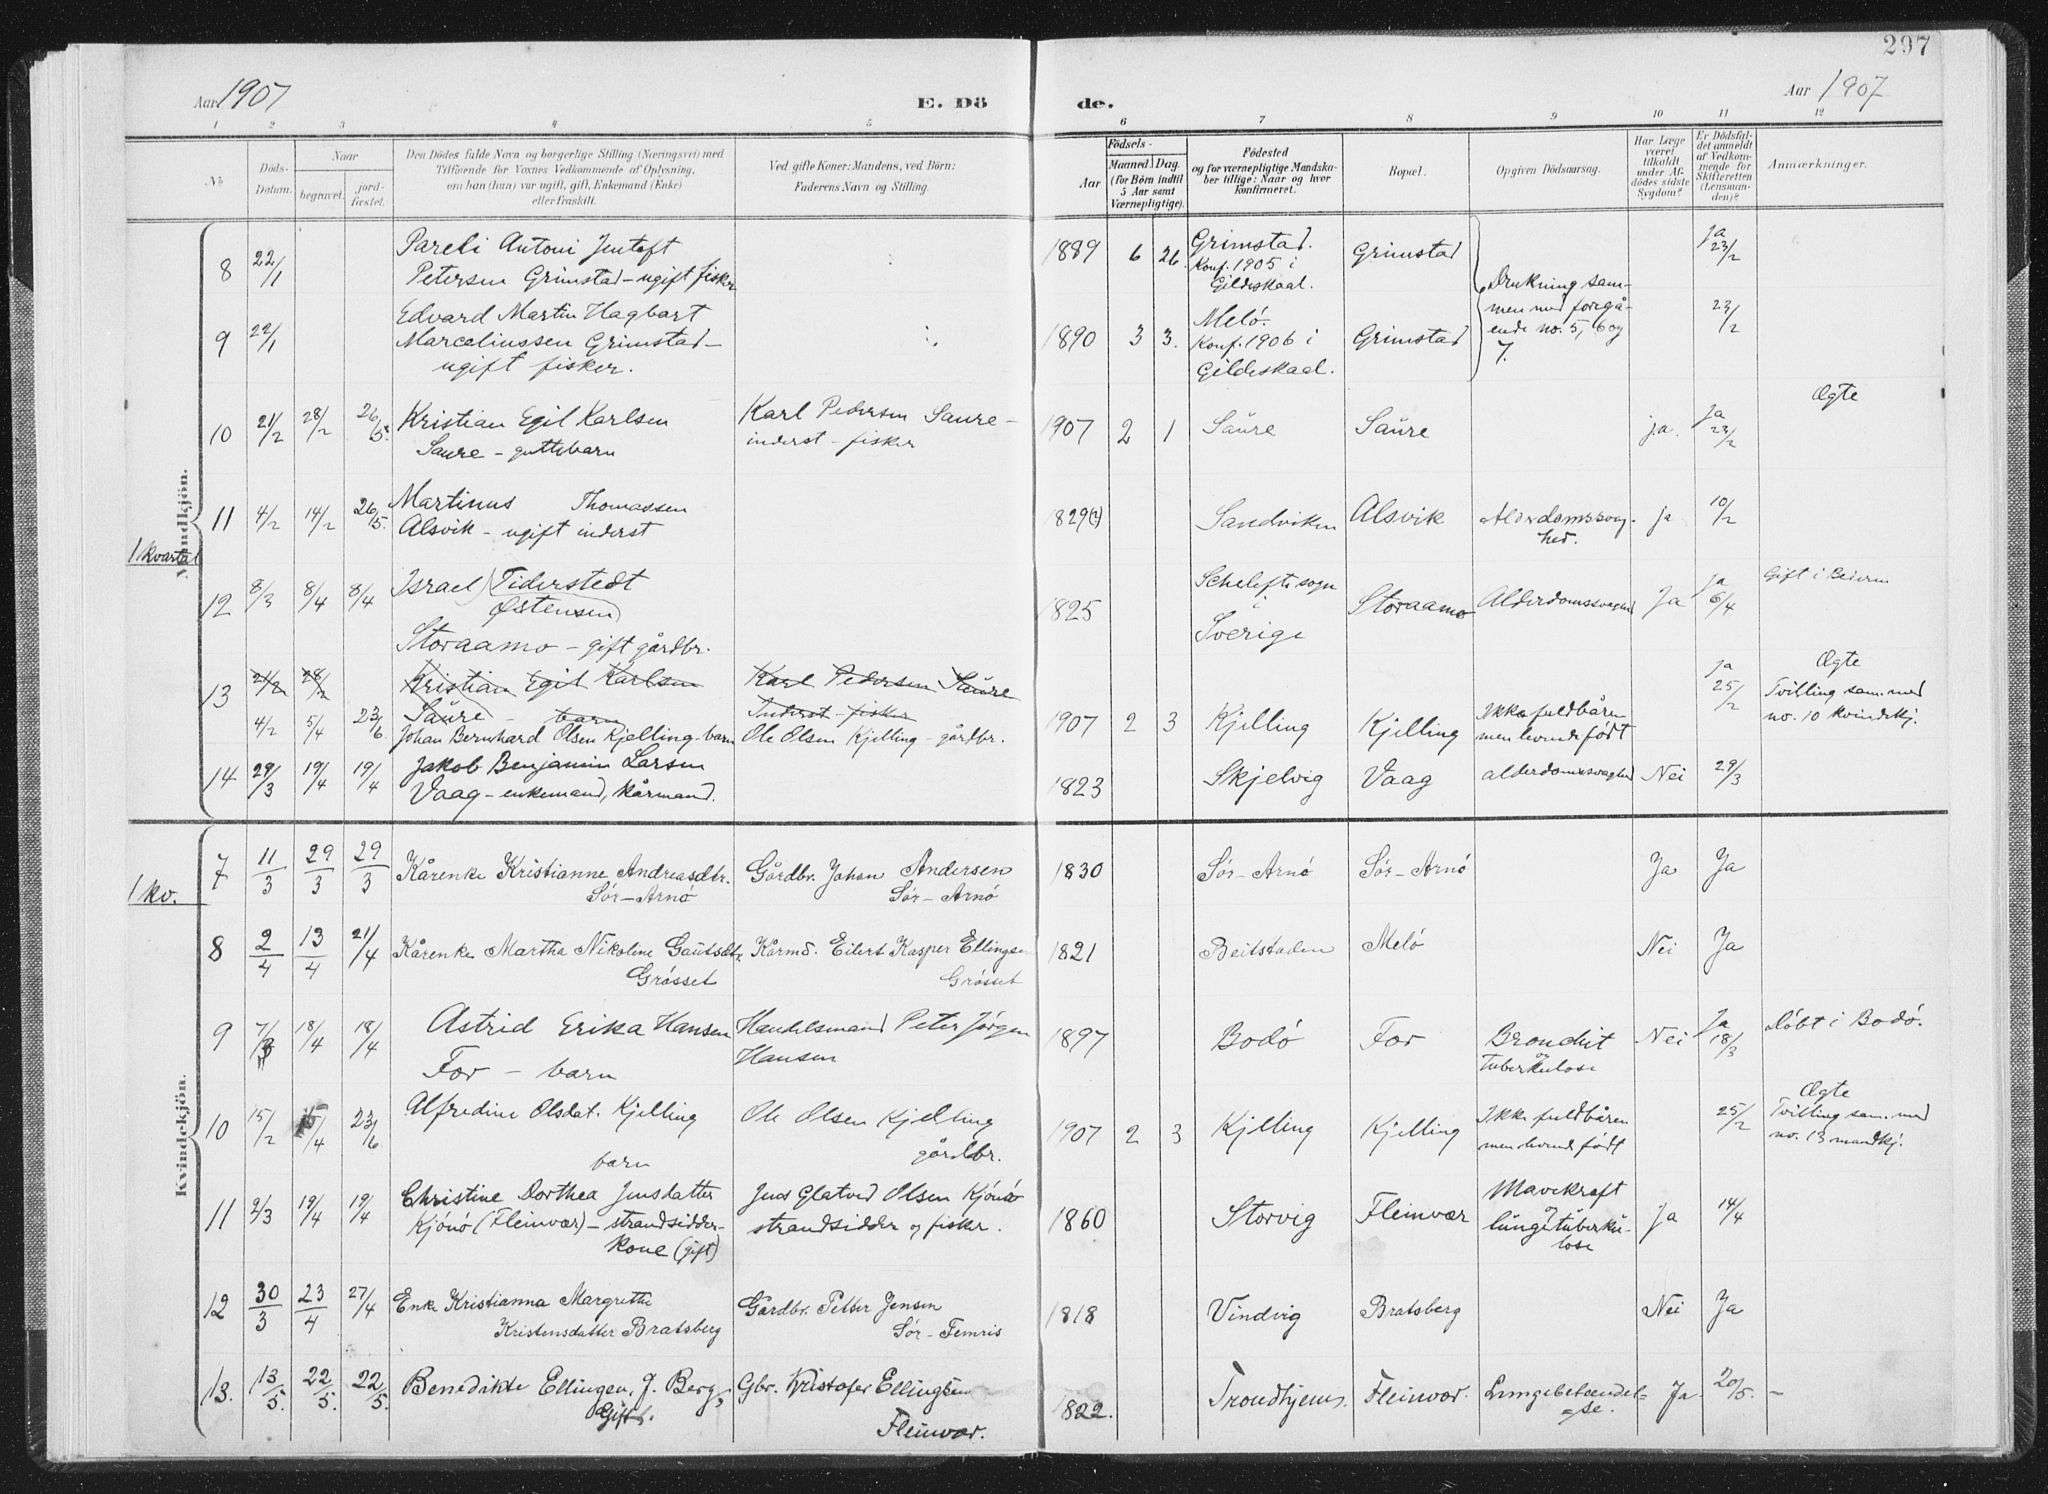 297
Aar 1907
E. Dö
de.
Aar 1907
1 2 3 4 5 6 7 8 9 10 11 12
No
Döds-Datum.
Naar
begravet.
jord-fæstet.
Den Dödes fulde Navn og borgerlige Stilling (Næringsvei) med
Tilföiende for Voxnes Vedkommende af Oplysning,
om han (hun) var ugift, gift, Enkemand (Enke)
eller fraskilt.
Ved gifte Koner: Mandens, ved Börn:
Faderens Navn og Stilling.
Födsels-
Aar
Maaned Dag
(for Börn indtil
5 Aar samt
Værnepligtige).
Födested
og for værnepligtige Mandska-
ber tillige: Naar og hvor
konfirmeret.
Bopæl.
Opgiven Dödsaarsag.
Har Læge
været
tilkaldt
under Af-
dødes sidste
Sygdom?
Er Dödsfal-
det anmeldt
af Vedkom-
mende for
Skifteretten
(Lensman-
den)?
Anmærkninger.
Mandkjön.
1 kvartal
8 22/1 Pareli Antoni Jentoft
Petersen Grimstad - ugift fisker
1889 6 26. Grimstad.
Konf. 1905 i
Gildeskaal.
Grimstad
Drukning sam-
men med foregå-
ende no. 5, 6 og
7.
ja
23/2
9 22/1 Edvard Martin Hagbart
Marceliussen Grimstad -
ugift fisker.
1890 3 3. Melö.
Konf. 1906 i
Gildeskaal.
Grimstad
23/2
10 21/2 28/2 26/5. Kristian Egil Karlsen
Saure - guttebarn
Karl Pedersen Saure -
inderst - fisker
1907 2 1 Saure Saure ja. ja
23/2
Ægte
11 4/2 14/2 26/5. Martinus Thomassen
Alsvik - ugift inderst
1829(?) Sandviken Alsvik Alderdomssvag-
hed.
ja 10/2
12 8/3 8/4 8/4 Israel (Tiderstedt
Østensen)
Storaamo - gift gårdbr.
1825 Schelefte sogn
Sverige
Storaamo Alderdomssvaghed Ja ja
6/4
Gift i Beieren
13 21/2 28/2 Kristian Egil Karlsen
Saure - barn
Karl Pedersen Saure
Inderst - fisker
4/2 5/4 23/6. Johan Bernhard Olsen Kjelling - barn
Ole Olsen Kjelling - gårdbr.
1907 2 3 Kjelling Kjelling Ikke fuldbåren
men levende født
ja
25/2
Ægte
Tvilling sam. med
no. 10 kvindekj.
14 29/3 19/4 19/4 Jakob Benjamin Larsen
Vaag - enkemand, kårmand.
1823 Skjelvig Vaag alderdomssvaghed Nei 29/3
1 kv.
Kvindekjön.
7 11/3 29/3 29/3 Kårenke Kristianne Andreasdtr.
Sör-Arnö
Gårdbr. Johan Andersen
Sör-Arnö
1830 Sör-Arnö Sör-Arnö Ja Ja
8 2/4 13/4 21/4 Kårenke Martha Nikoline Gautsdtr.
Grösset
Kårmd. Eilert Kasper Ellingsen
Grösset
1821 Beitstaden Melö Nei Ja
9 7/3 18/4 18/4 Astrid Erika Hansen
For - barn
Handelsmand Peter Jørgen
Hansen
1897 Bodö For Bronchit
og
tuberkulose
Nei Ja
18/3
Döbt i Bodö.
10 15/2 5/4 23/6 Alfredine Olsdat. Kjelling
barn
Ole Olsen Kjelling
gårdbr.
1907 2 3 Kjelling Kjelling Ikke fuldbåren
men levende født
25/2
Ægte
Tvilling sam. med
no. 13 mandkj.
11 9/3 19/4 19/4 Christine Dorthea Jensdatter
Kjönö (Fleinvær) - strandsidder-
kone (gift)
Jens Glatved Olsen Kjönö
strandsidder og fisker.
1860 Storvig Fleinvær Mavekræft
og
lungetuberku-
lose
ja 14/4
12 30/3 23/4 27/4 Enke Kristianna Margrethe
Kristensdatter Bratsberg
Gårdbr. Petter Jensen
Sör-Femris
1818 Vindvig Bratsberg Nei Ja
13. 13/5. 22/5. 22/5. Benedikte Ellingsen, f. Berg,
Gift.
Gbr. Kristofer Ellingsen
Fleinvær.
1822. Trondhjem. Fleinvær. Lungebetændel-
se.
Ja 20/5. -